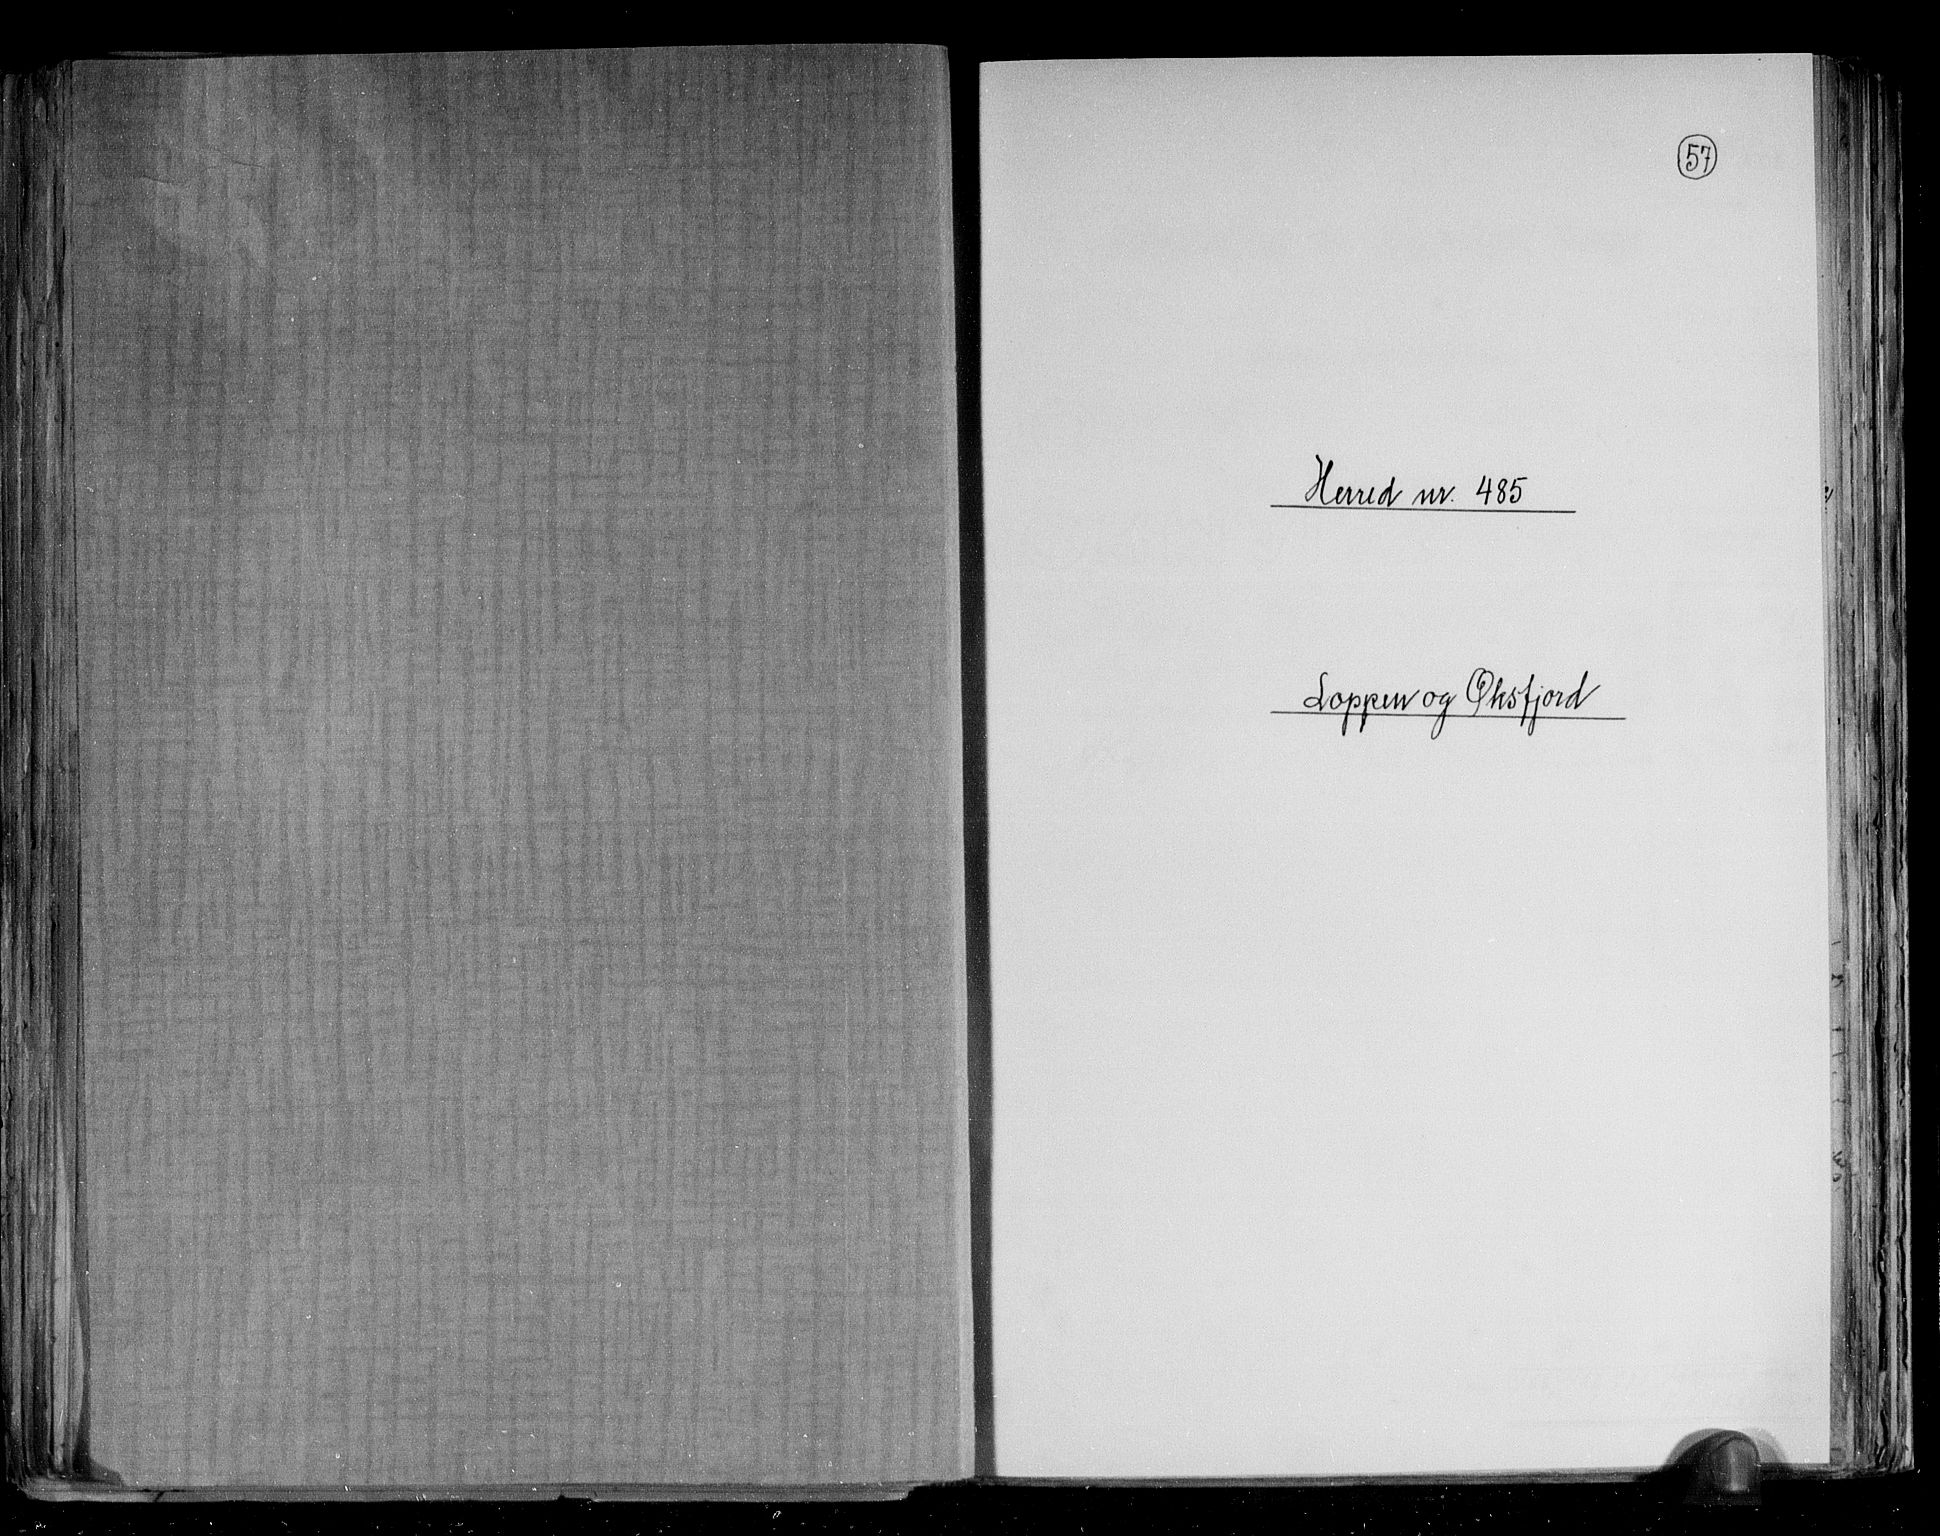 57
Herred nr. 485
Loppen og Øksfjord